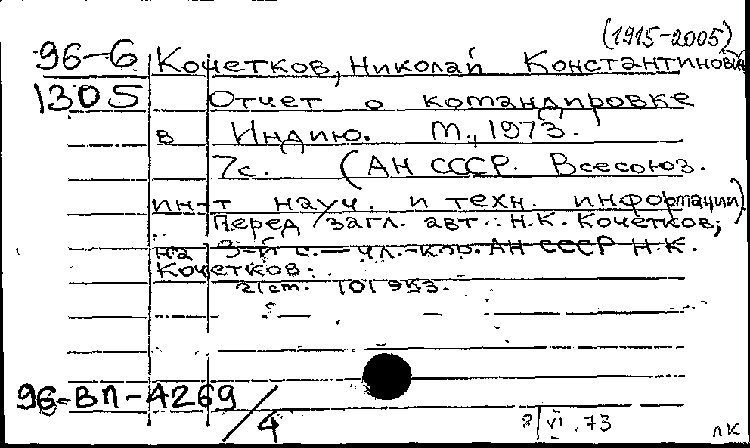 (1915-2005)
96-6 Кочетков, Николай Константинович
1305 Отчет о командировке
в Индию. М., 1973.
7с. (АН СССР. Всесоюз.
ин-т науч. и техн. информации)
Перед загл. авт.: Н.К. Кочетков;
на 3-й с. — чл.-кор. АН СССР Н.К.
Кочетков.
101953.
96-ВП-4269/4
8/VI.73
лк